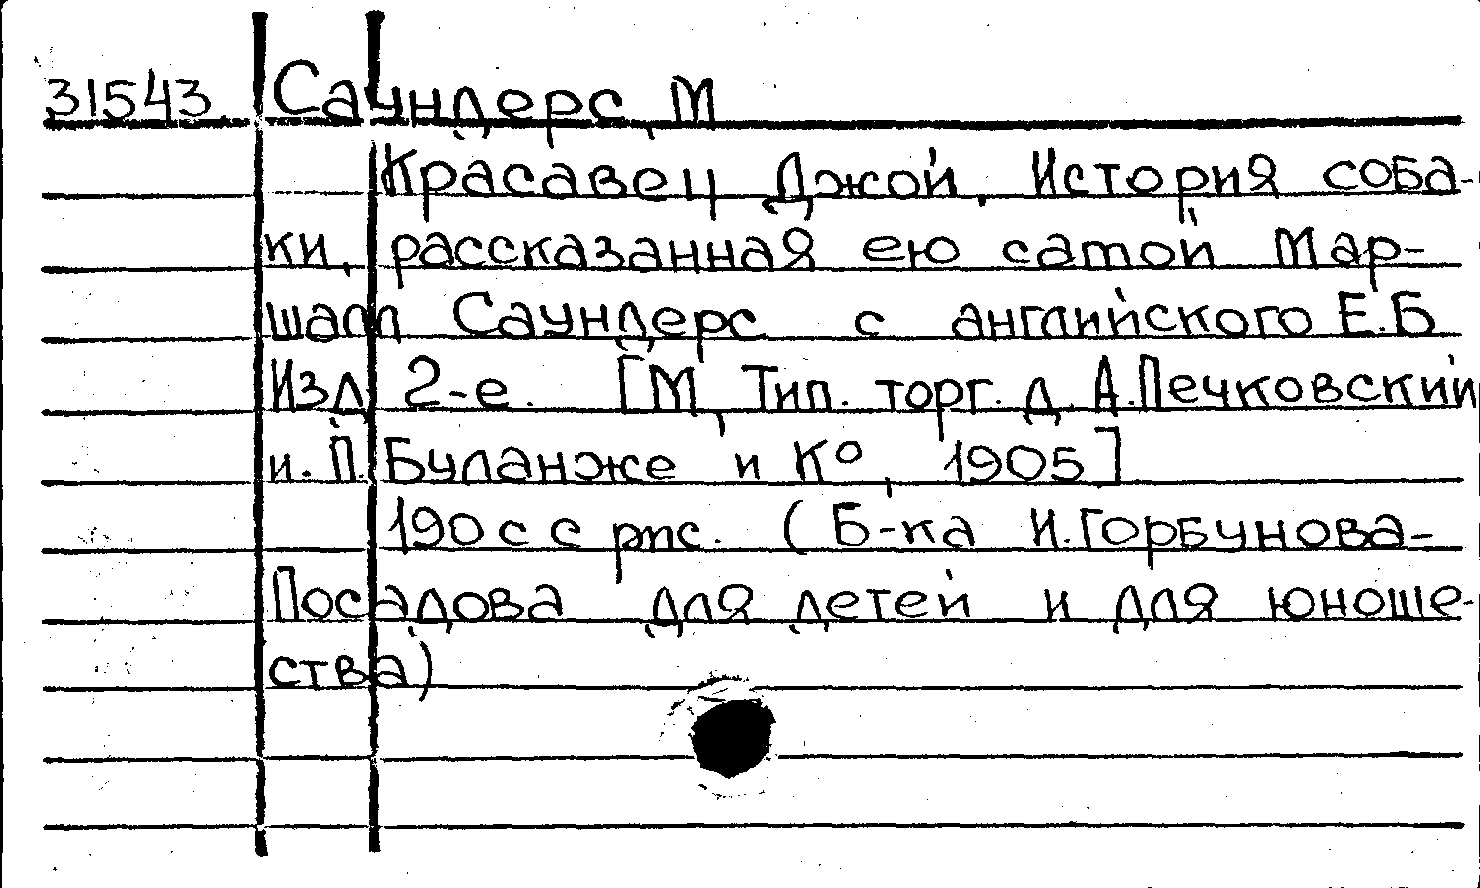 31543 Саундерс, М
Красавец Джой, История соба-
ки, рассказанная ею самой Мар-
шалл Саундерс с английского Е.Б
Изд 2-е. [М, Тип. торг. д. А.Печковский
и. П. Буланже и К°, 1905]
190 с с рис. (Б-ка И.Горбунова-
Посадова для детей и для юноше-
ства)